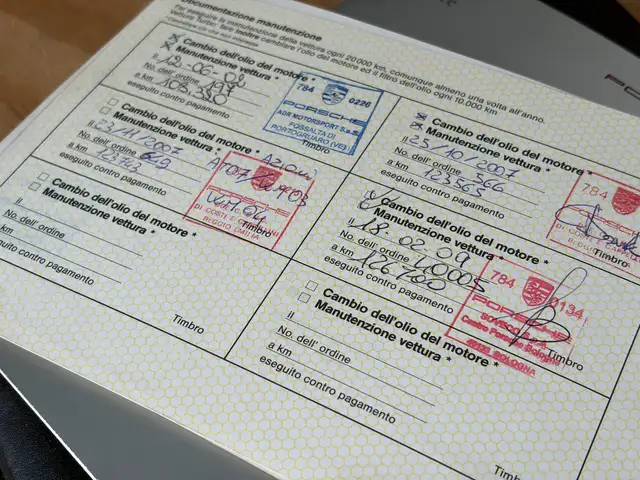 Documentazione manutenzione
Far eseguire la manutenzione della vettura ogni 20 000 km, comunque almeno una volta all'anno.
Vetture Turbo: fare inoltre cambiare l'olio del motore ed il filtro dell'olio ogni 10.000 km
Cambio dell'olio del motore *
Manutenzione vettura *
il 12-06-02
No. dell' ordine 497
a km
eseguito contro pagamento
784 0226
PORSCHE
ADR MOTORSPORT S.a.s.
FOSSALTA DI
PORTOGRUARO (VE)
Timbro
Cambio dell'olio del motore *
Manutenzione vettura *
il 25/10/2007
No. dell' ordine 566
a km 123565
eseguito contro pagamento
784
Timbro
Cambio dell'olio del motore *
Manutenzione vettura *
il 23/11/2007
No. dell' ordine 649
a km
eseguito contro pagamento
REGGIO EMILIA
Timbro
Cambio dell'olio del motore *
Manutenzione vettura *
il 18.02.09
No. dell' ordine
a km 126700
eseguito contro pagamento
784 0134
PORSCHE
Centro Porsche Bologna
BOLOGNA
Timbro
Cambio dell'olio del motore *
Manutenzione vettura *
il
No. dell' ordine
a km
eseguito contro pagamento
Timbro
Cambio dell'olio del motore *
Manutenzione vettura *
il
No. dell' ordine
a km
eseguito contro pagamento
Timbro